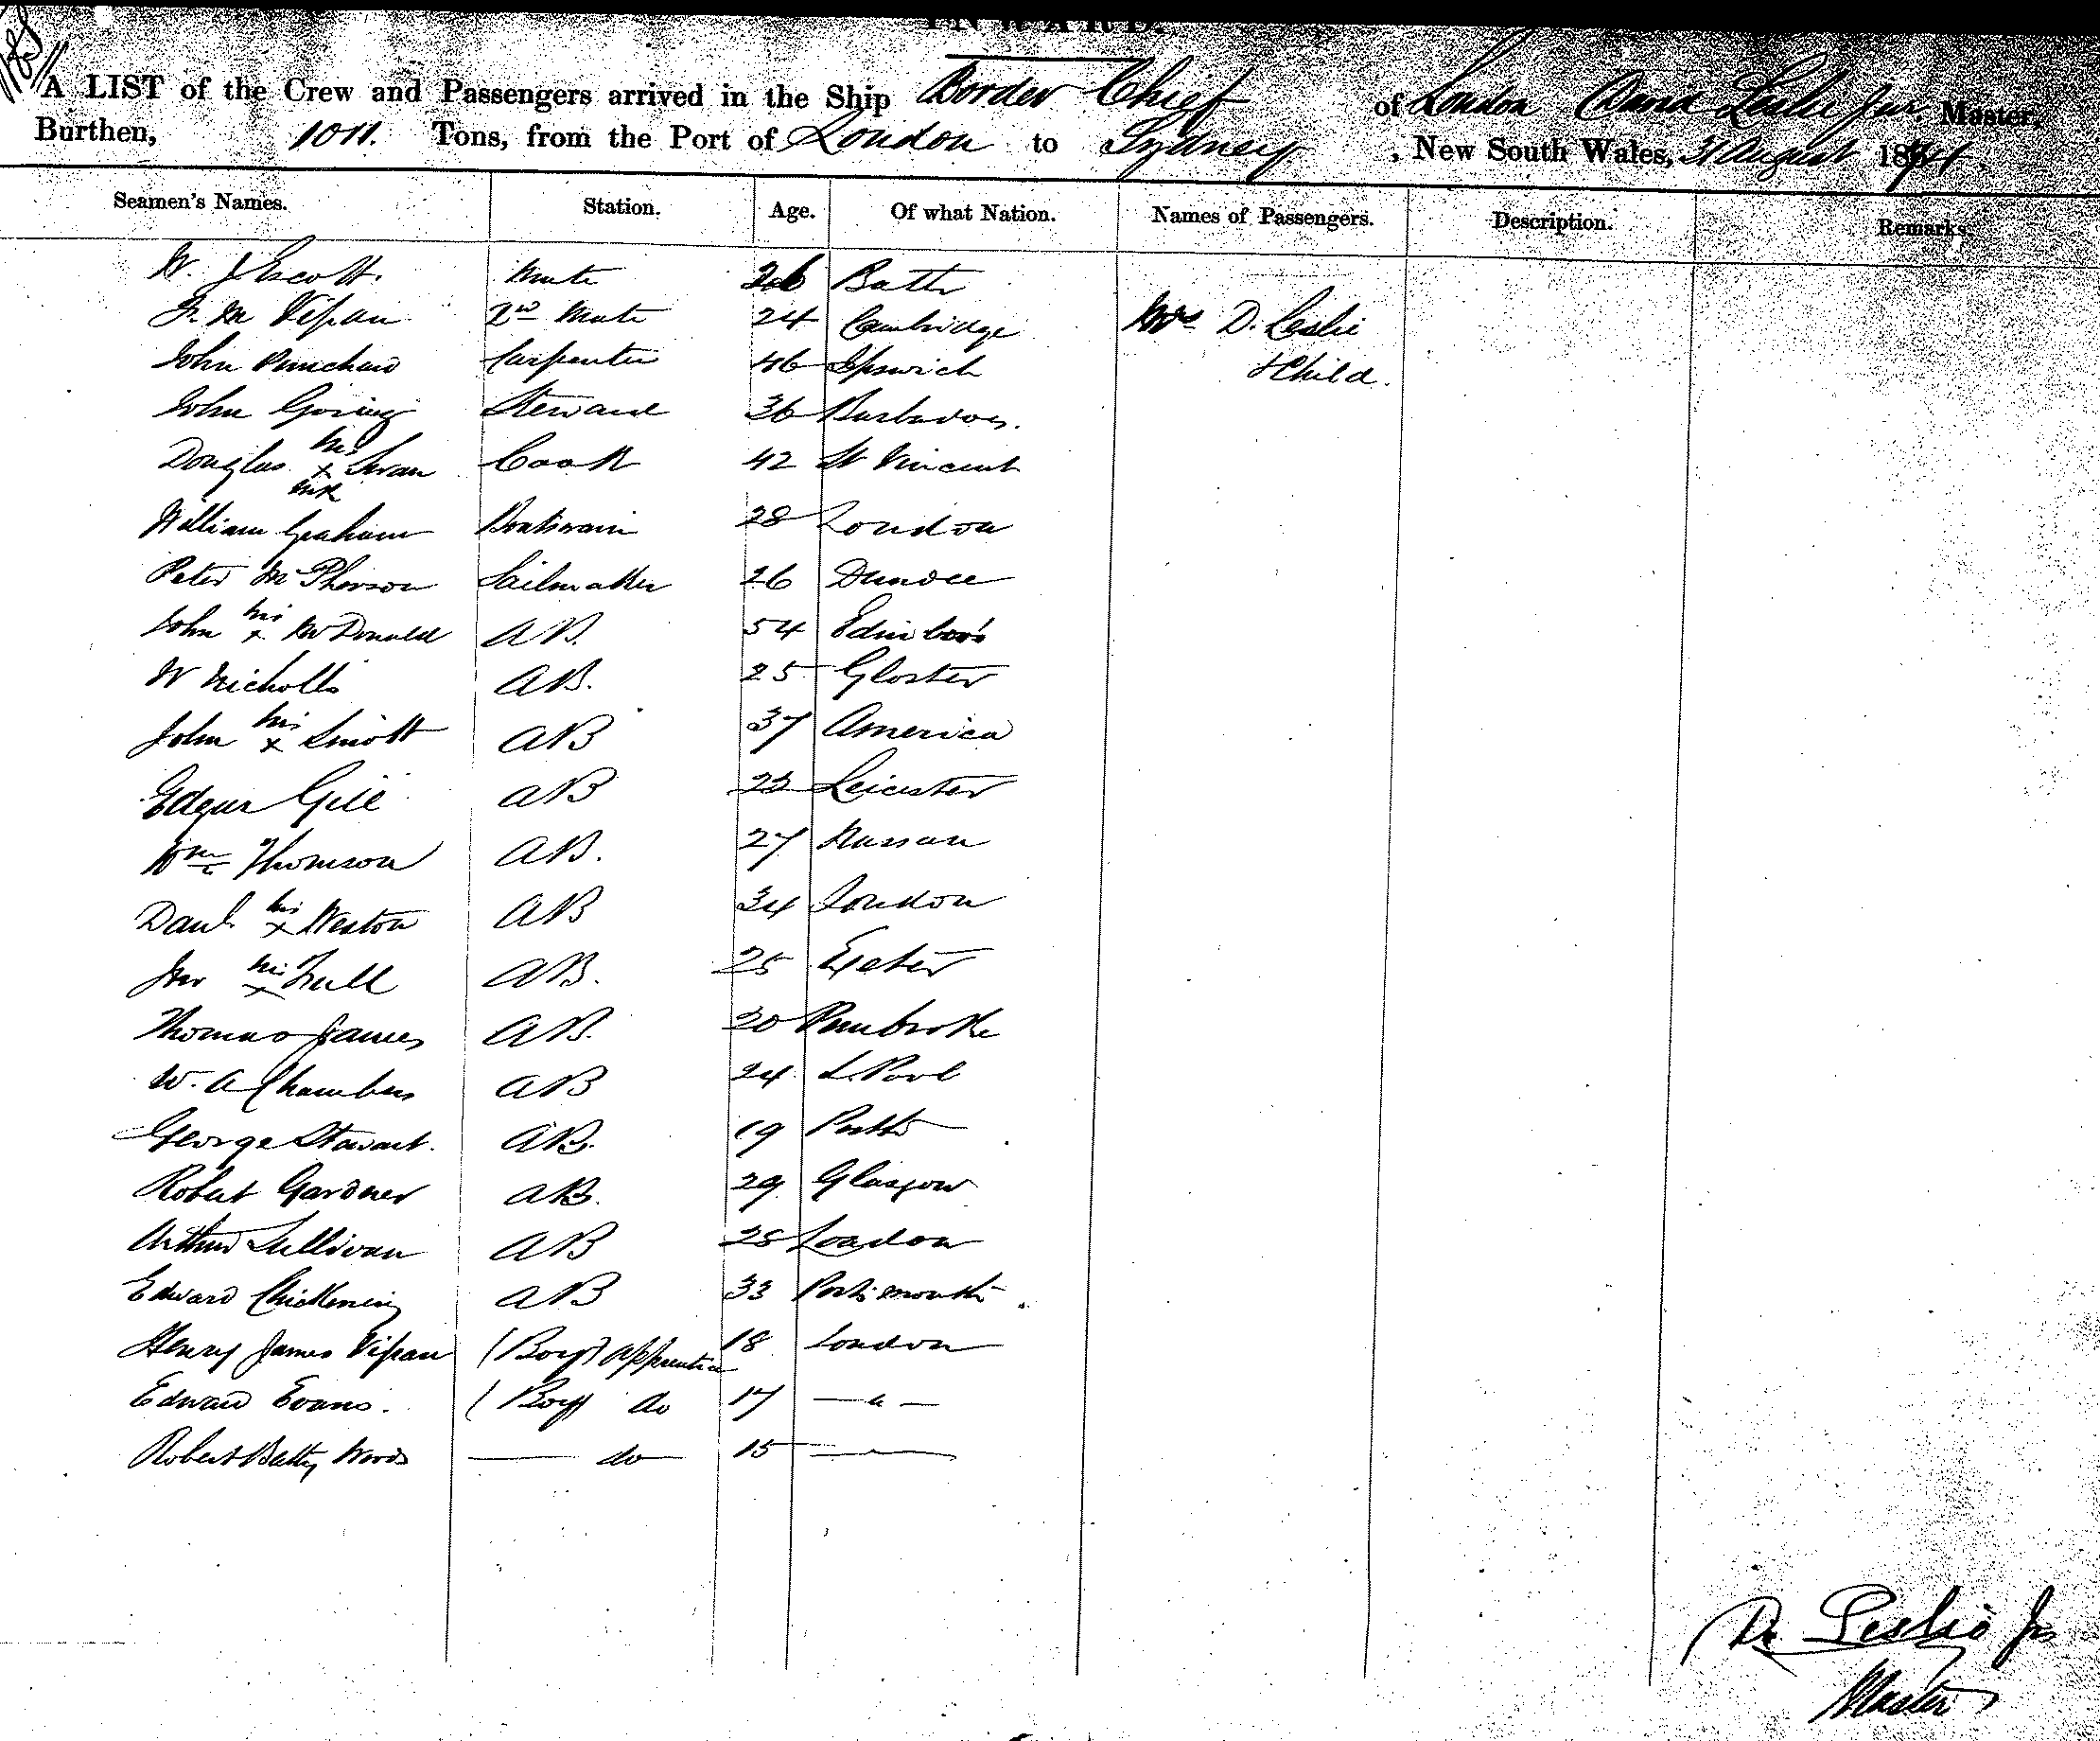 INWARD.
A LIST of the Crew and Passengers arrived in the Ship Border Chief of London David Leslie Jur. Master,
Burthen, 1011. Tons, from the Port of London to Sydney, New South Wales, 31 August 1874
Seamen's Names. Station. Age. Of what Nation. Names of Passengers. Description. Remarks.
W. J Escott. Mate 26 Bath
F. M Vipan 2nd Mate 24 Cambridge Mrs D. Leslie
John Punchard Carpenter 46 Ipswich & Child.
John Goring Steward 36 Barbadoes.
Douglas his x mk Swan Cook 42 St Vincent
William Graham Boatswain 28 London
Peter McPherson Sailmaker 26 Dundee
John his x McDonald AB. 54 Edinboro'
W Nicholls AB. 25 Gloster
John his x Smott AB 37 America
Edgar Gill AB 23 Leicester
Wm Thomson AB. 27 Nassau
Danl. his x Weston AB 34 London
Jno his x AB. 25 Exeter
Thomas James AB. 20 Pembroke
W. A Chambers AB 24 L.Pool
George Stewart. AB. 19 Perth
Robert Gardner AB. 29 Glasgow
Arthur Sullivan AB 28 London
Edward Chickening AB 33 Portsmouth.
Henry James Vipan (Boy) apprentice 18 London
Edward Evans. (Boy) do 17 — " —
Robert Batty Woods — do — 15 ——
D. Leslie Jr
Master